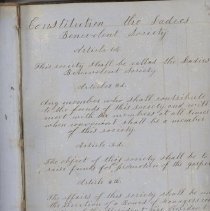 Constitution the Ladies
Benevolent Society
Article 1st
This society shall be called the Ladies
Benevolent Society
Article 2d.
Any member who shall contribute
to the funds of this society and will
meet with the members at all times
when convenient shall be a member
of this society
Article 3d.
The object of this society shall be to
raise funds for promotion of the gospel
Article 4th
The affairs of this society shall be under
the direction of a Board of Managers